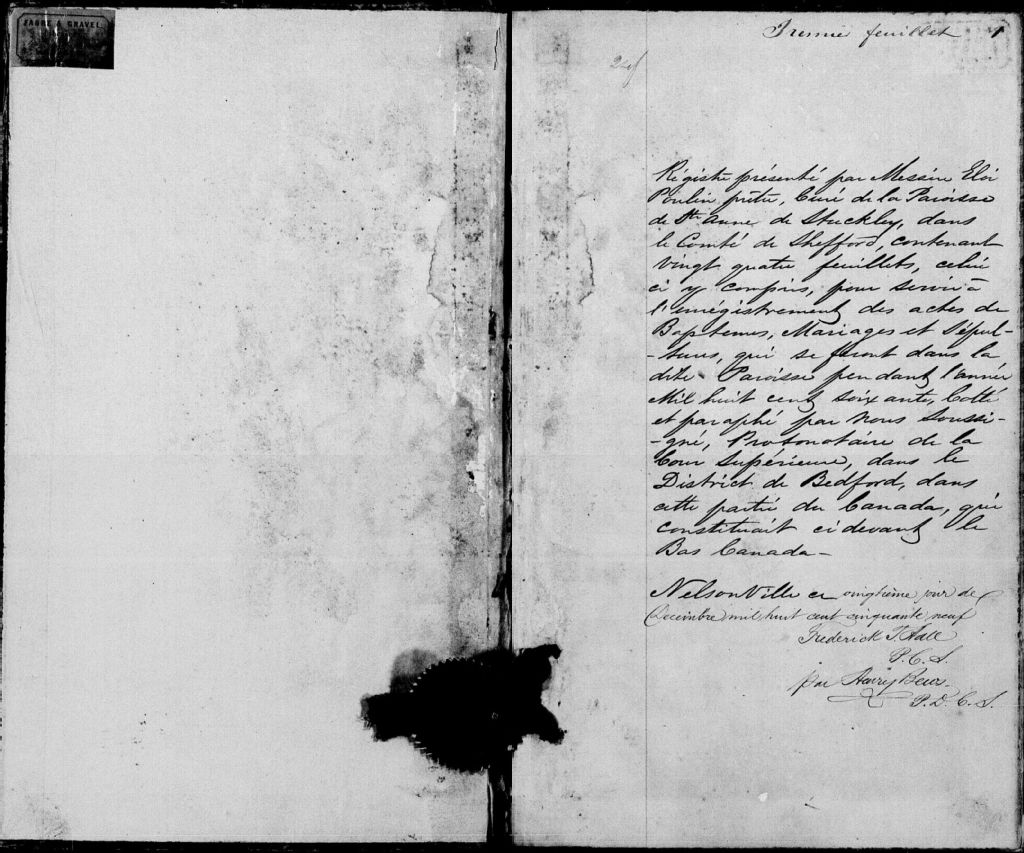 FABRE & GRAVEL
Premier feuillet 1
24f
Régistre présenté par Messire Eloi
Poulin prêtre, Curé de la Paroisse
de Ste Anne de Stuckley, dans
le Comté de Shefford, contenant
vingt quatre feuillets, celui
ci y compris, pour servir à
l'enrégistrement des actes de
Baptemes, Mariages et Sépul-
-tures, qui se feront dans la
dite Paroisse pendant l'année
Mil huit cent soixante, Cotté
et paraphé par nous soussi-
-gné, Protonotaire de la
Cour Supérieure, dans le
District de Bedford, dans
cette partie du Canada, qui
constituait ci devant le
Bas Canada-
NelsonVille ce vingtième jour de
Décembre mil huit cent cinquante neuf
Frederick T. Hall
P. C. S.
par Henry
P. D. C. S.